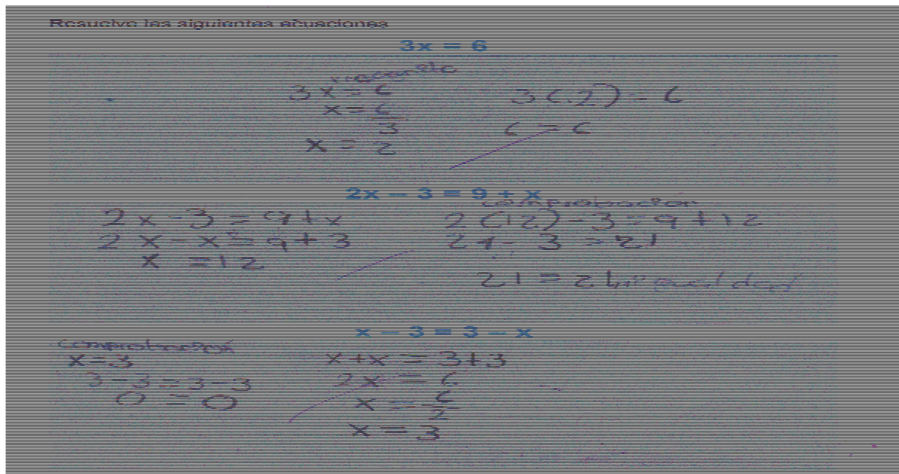 Resuelve las siguientes ecuaciones
3x = 6
3x = 6
x = 6/3
x = 2
3(2) = 6
6 = 6
2x – 3 = 9 + x
2x - 3 = 9 + x
2x - x = 9 + 3
x = 12
comprobación
2(12) - 3 = 9 + 12
24 - 3 = 21
21 = 21 igualdad
x – 3 = 3 – x
comprobación
x = 3
3 - 3 = 3 - 3
0 = 0
x + x = 3 + 3
2x = 6
x = 6/2
x = 3